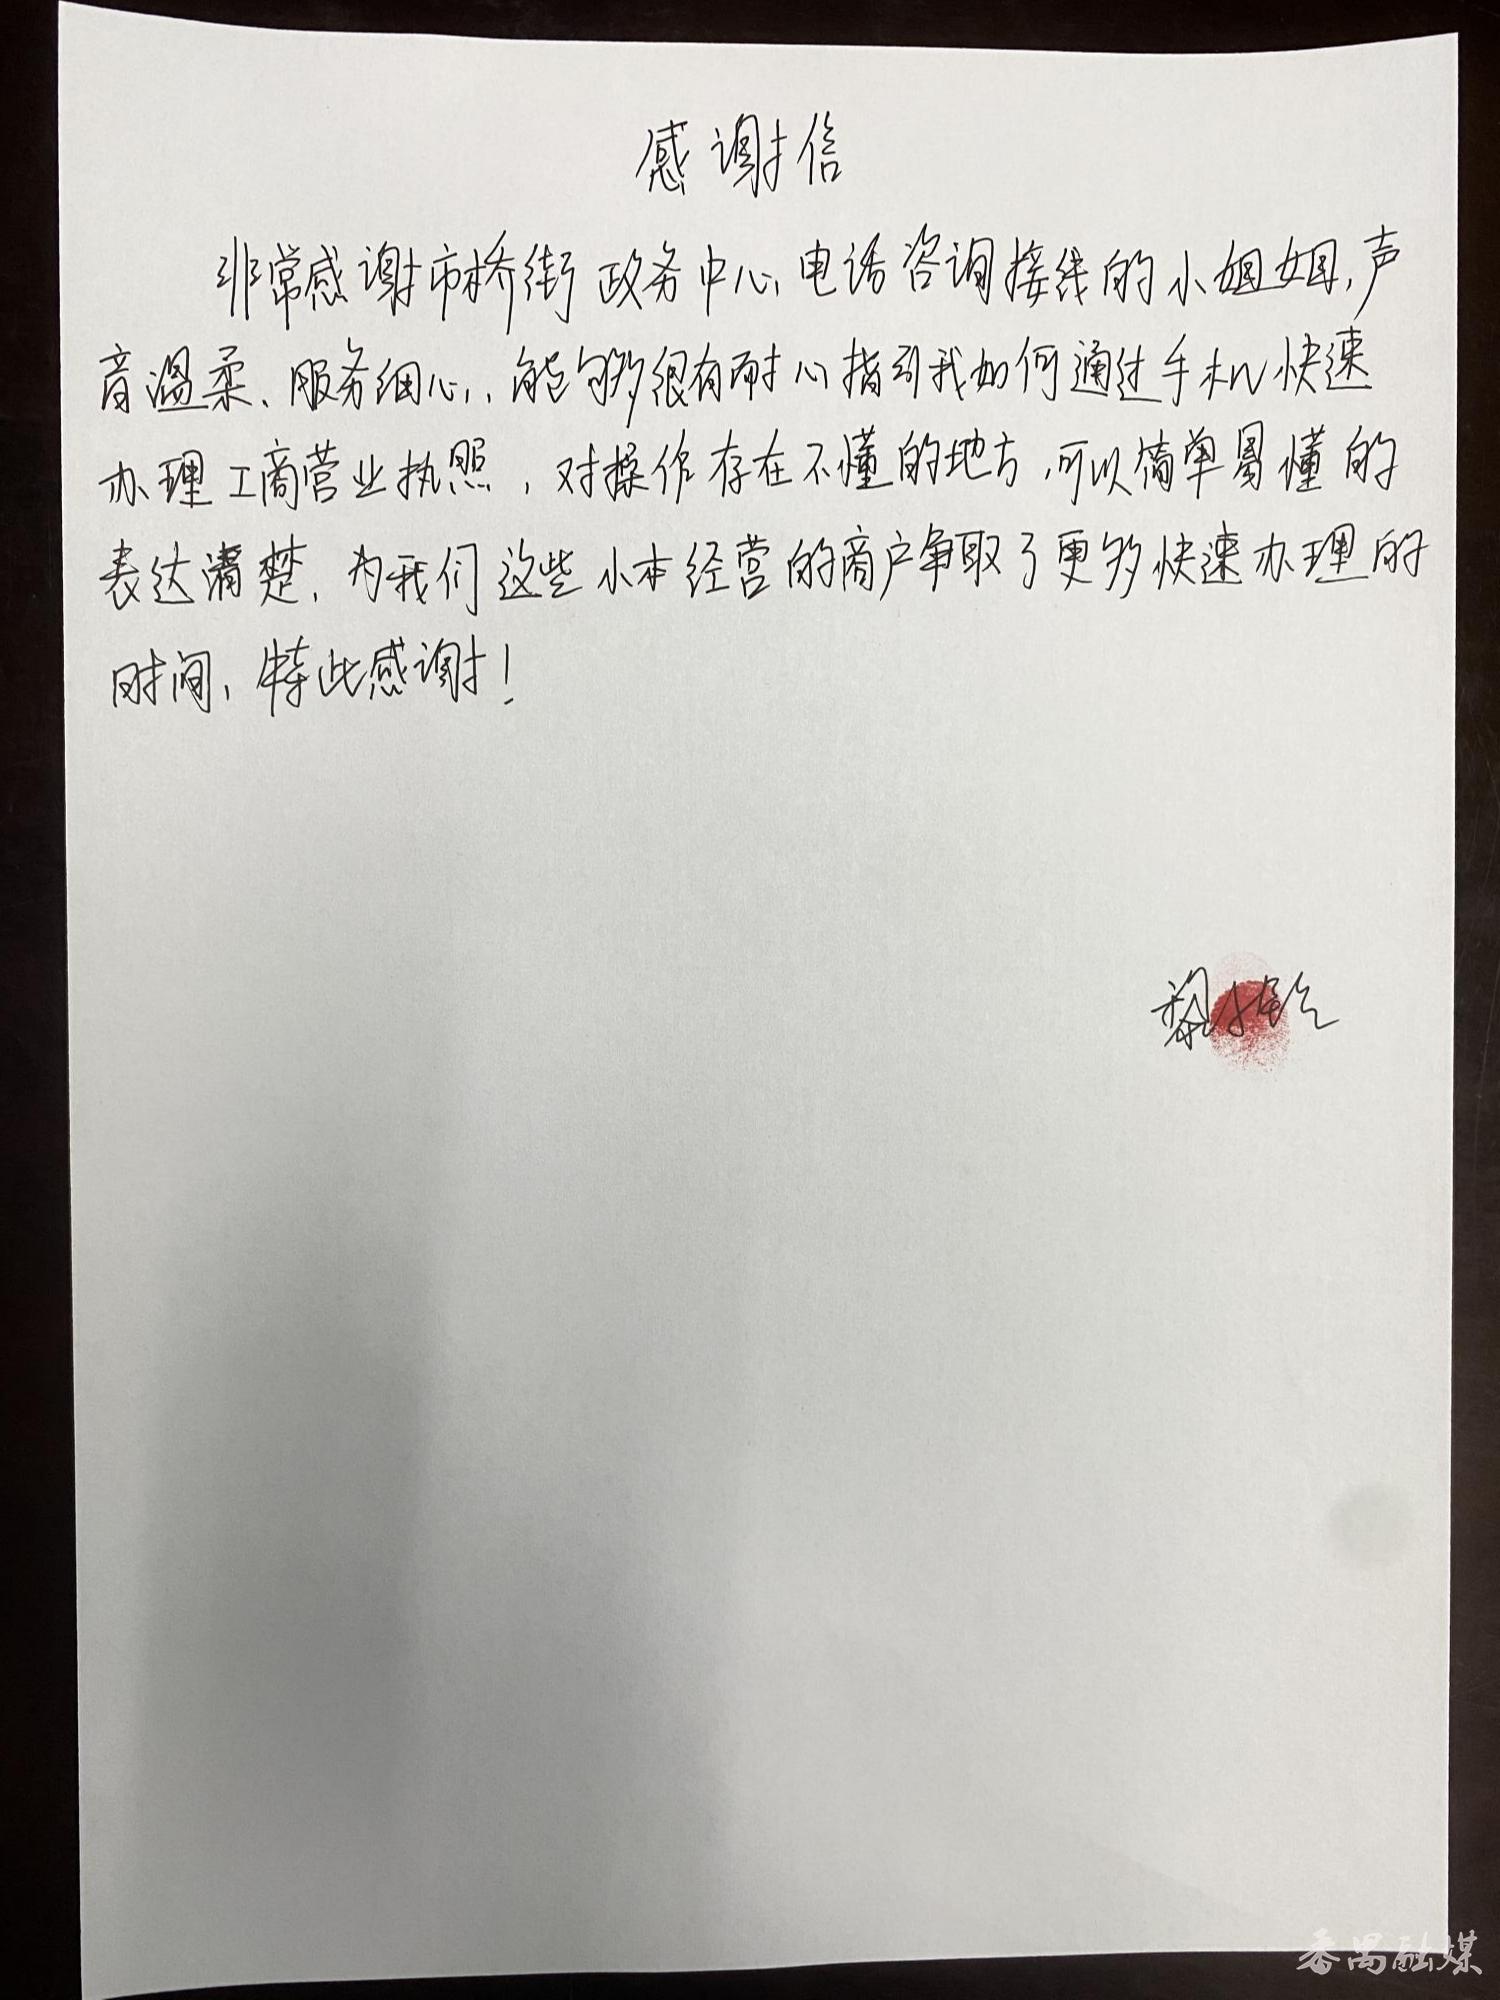 感谢信
非常感谢市桥街政务中心电话咨询接线的小姐姐,声
音温柔、服务细心,能够很有耐心指引我如何通过手机快速
办理工商营业执照,对操作存在不懂的地方,可以简单易懂的
表达清楚,为我们这些小本经营的商户争取了更多快速办理的
时间,特此感谢!
番禺融媒